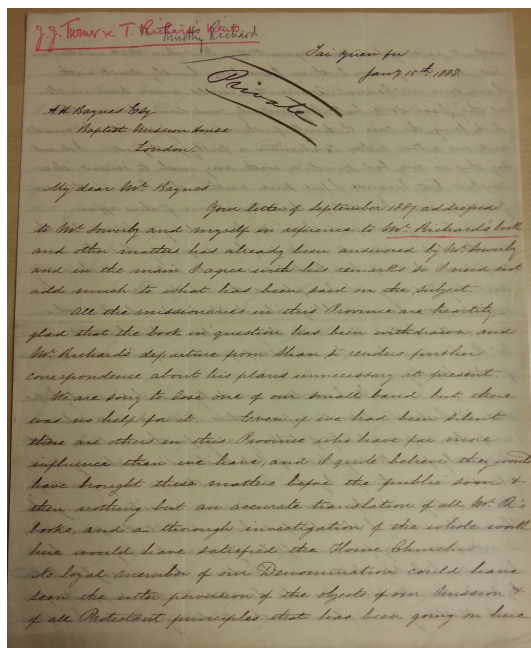 J.J. Turner re T. Richard's Views
Timothy Richard
Tai Yüen fu
Jany 15th. 1888.
Private
A.H. Baynes Esq
Baptist Mission House
London.
My dear Mr. Baynes
Your letter of September 1887 addressed
to Mr. Sowerby and myself in reference to Mr. Richard's book
and other matters has already been answered by Mr. Sowerby
and in the main I agree with his remarks so I need not
add much to what has been said on the subject.
All the missionaries in this Province are heartily
glad that the book in question has been withdrawn, and
Mr. Richard's departure from Shan Si renders further
correspondence about his plans unnecessary at present.
We are sorry to lose one of our small band but there
was no help for it. Even if we had been silent
there are others in this Province who have far more
influence than we have, and I quite believe they would
have brought these matters before the public soon &
then nothing but an accurate translation of all Mr. R's
books, and a through investigation of the whole work
here would have satisfied the Home Church.
No loyal member of our Denomination could have
seen the utter perversion of the objects of our Mission &
of all Protestant principles that has been going on here